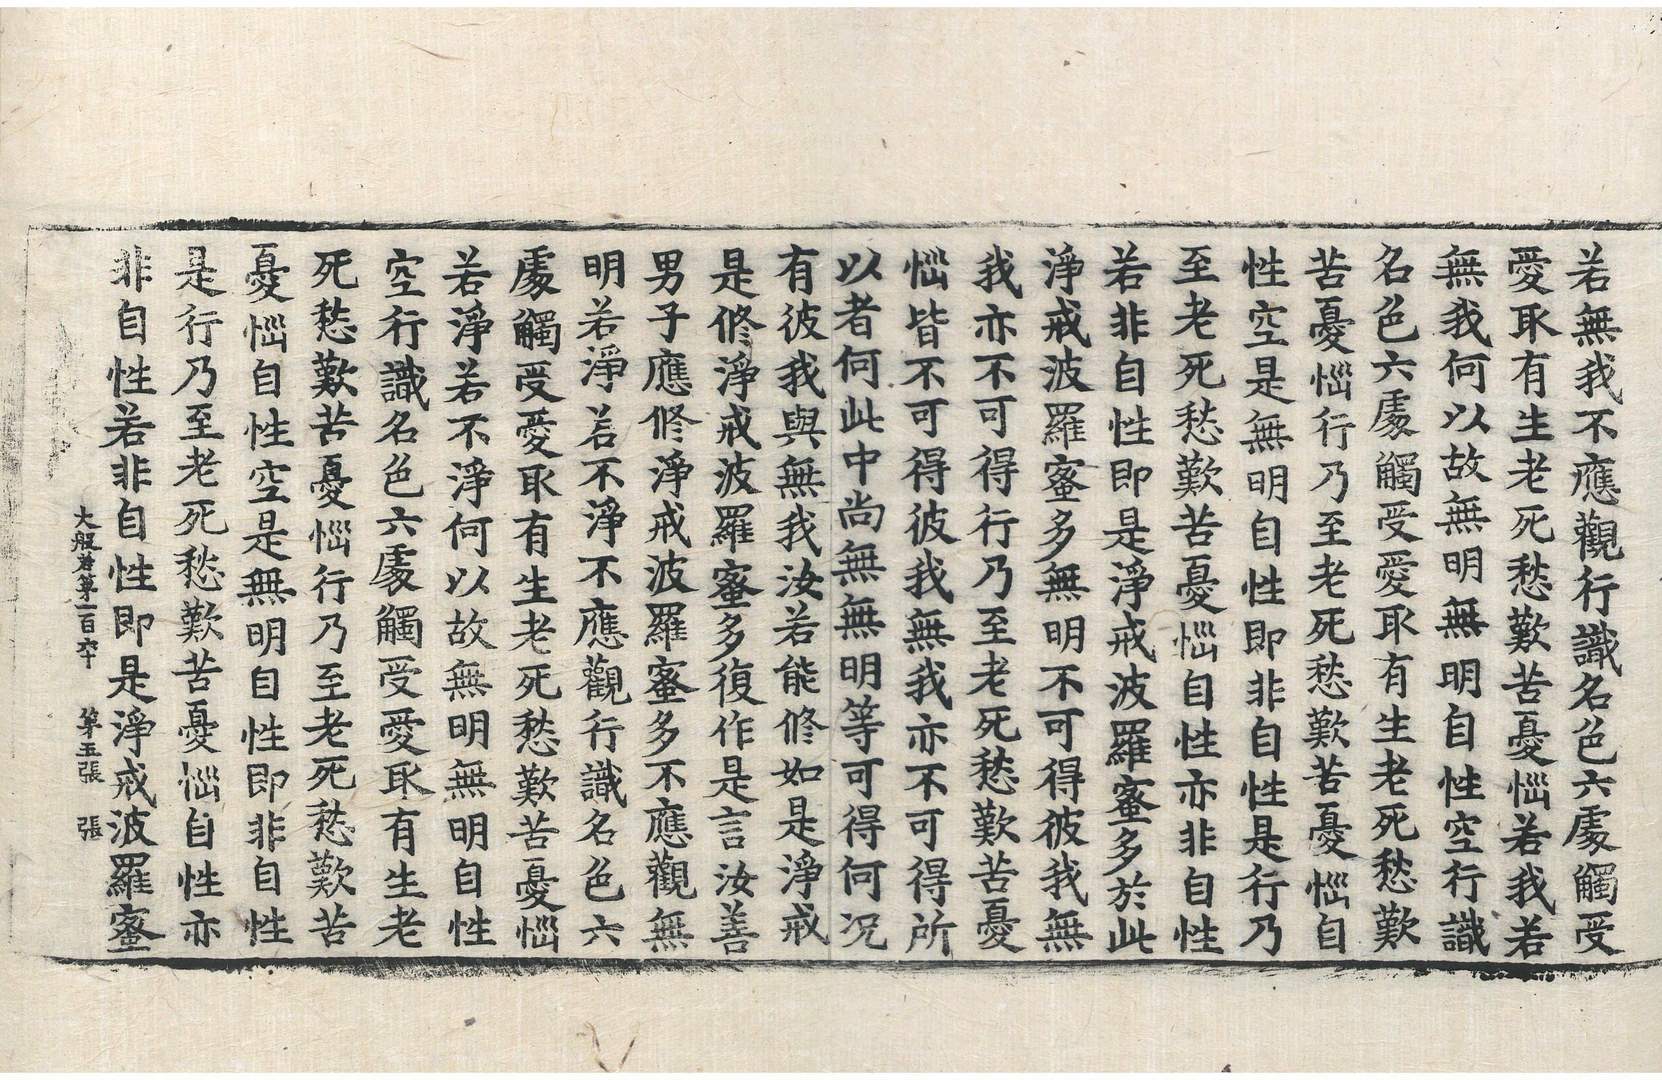 若無我不應觀行識名色六處觸受
愛取有生老死愁歎苦憂惱若我若
無我何以故無明無明自性空行識
名色六處觸受愛取有生老死愁歎
苦憂惱行乃至老死愁歎苦憂惱自
性空是無明自性即非自性是行乃
至老死愁歎苦憂惱自性亦非自性
若非自性即是淨戒波羅蜜多於此
淨戒波羅蜜多無明不可得彼我無
我亦不可得行乃至老死愁歎苦憂
惱皆不可得彼我無我亦不可得所
以者何此中尚無無明等可得何况
有彼我與無我汝若能修如是淨戒
是修淨戒波羅蜜多復作是言汝善
男子應修淨戒波羅蜜多不應觀無
明若淨若不淨不應觀行識名色六
處觸受愛取有生老死愁歎苦憂惱
若淨若不淨何以故無明無明自性
空行識名色六處觸受愛取有生老
死愁歎苦憂惱行乃至老死愁歎苦
憂惱自性空是無明自性即非自性
是行乃至老死愁歎苦憂惱自性亦
非自性若非自性即是淨戒波羅蜜
大般若第一百六十 第五張 張